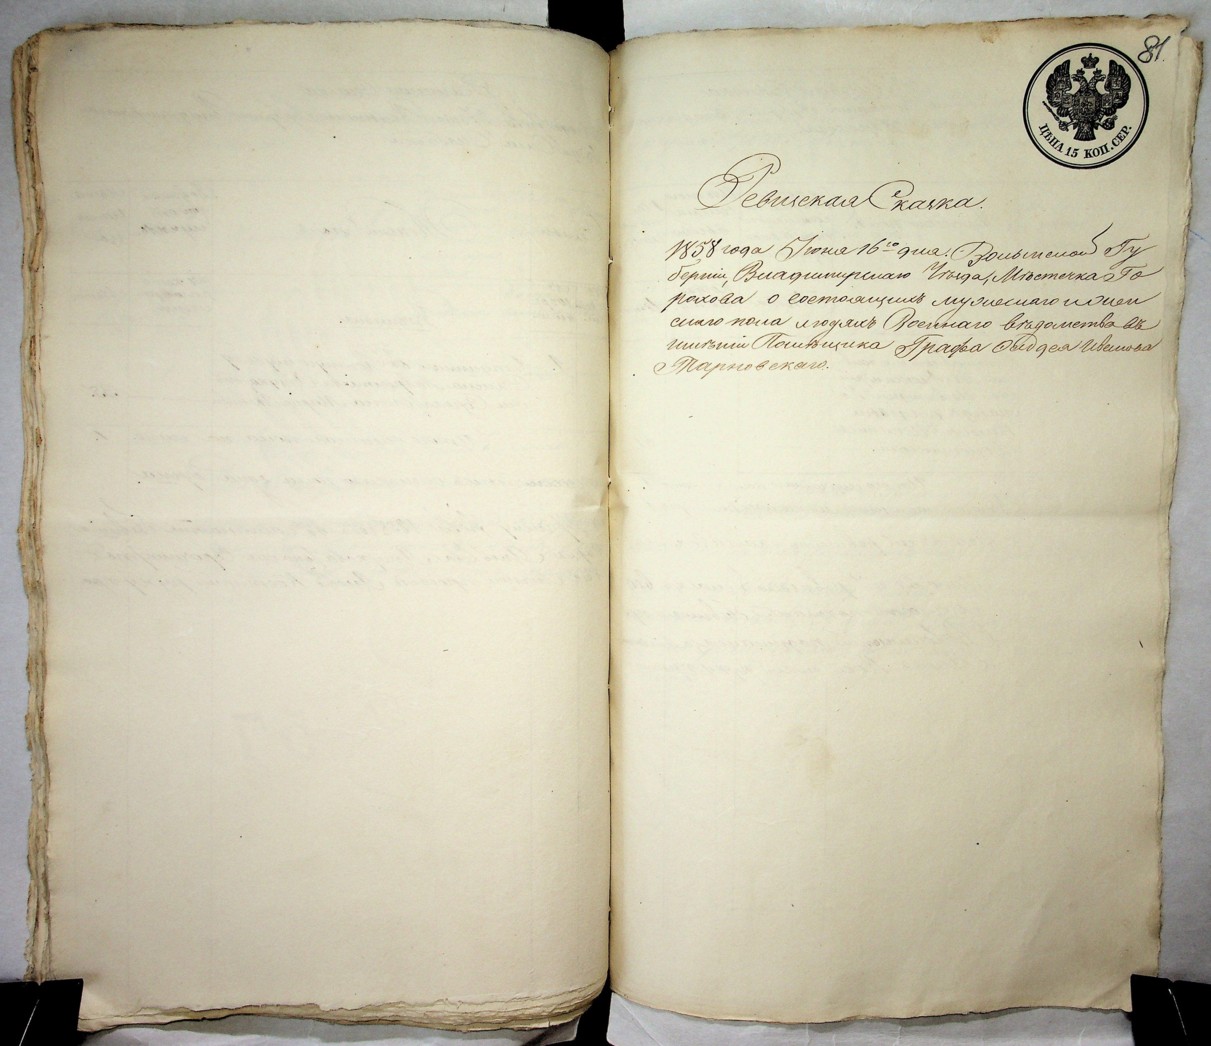 81.
ЦѢНА 15 КОП. СЕР.
Ревизская Сказка.
1858 года Июня 16го дня. Волынской Гу
берніи, Владимирскаго Уѣзда, Мѣстечка Го
рохова о состоящихъ мужескаго и жен
скаго пола людяхъ Военнаго вѣдомства въ
имѣніи Помѣщика Графа Ивanова
Тарновскаго.